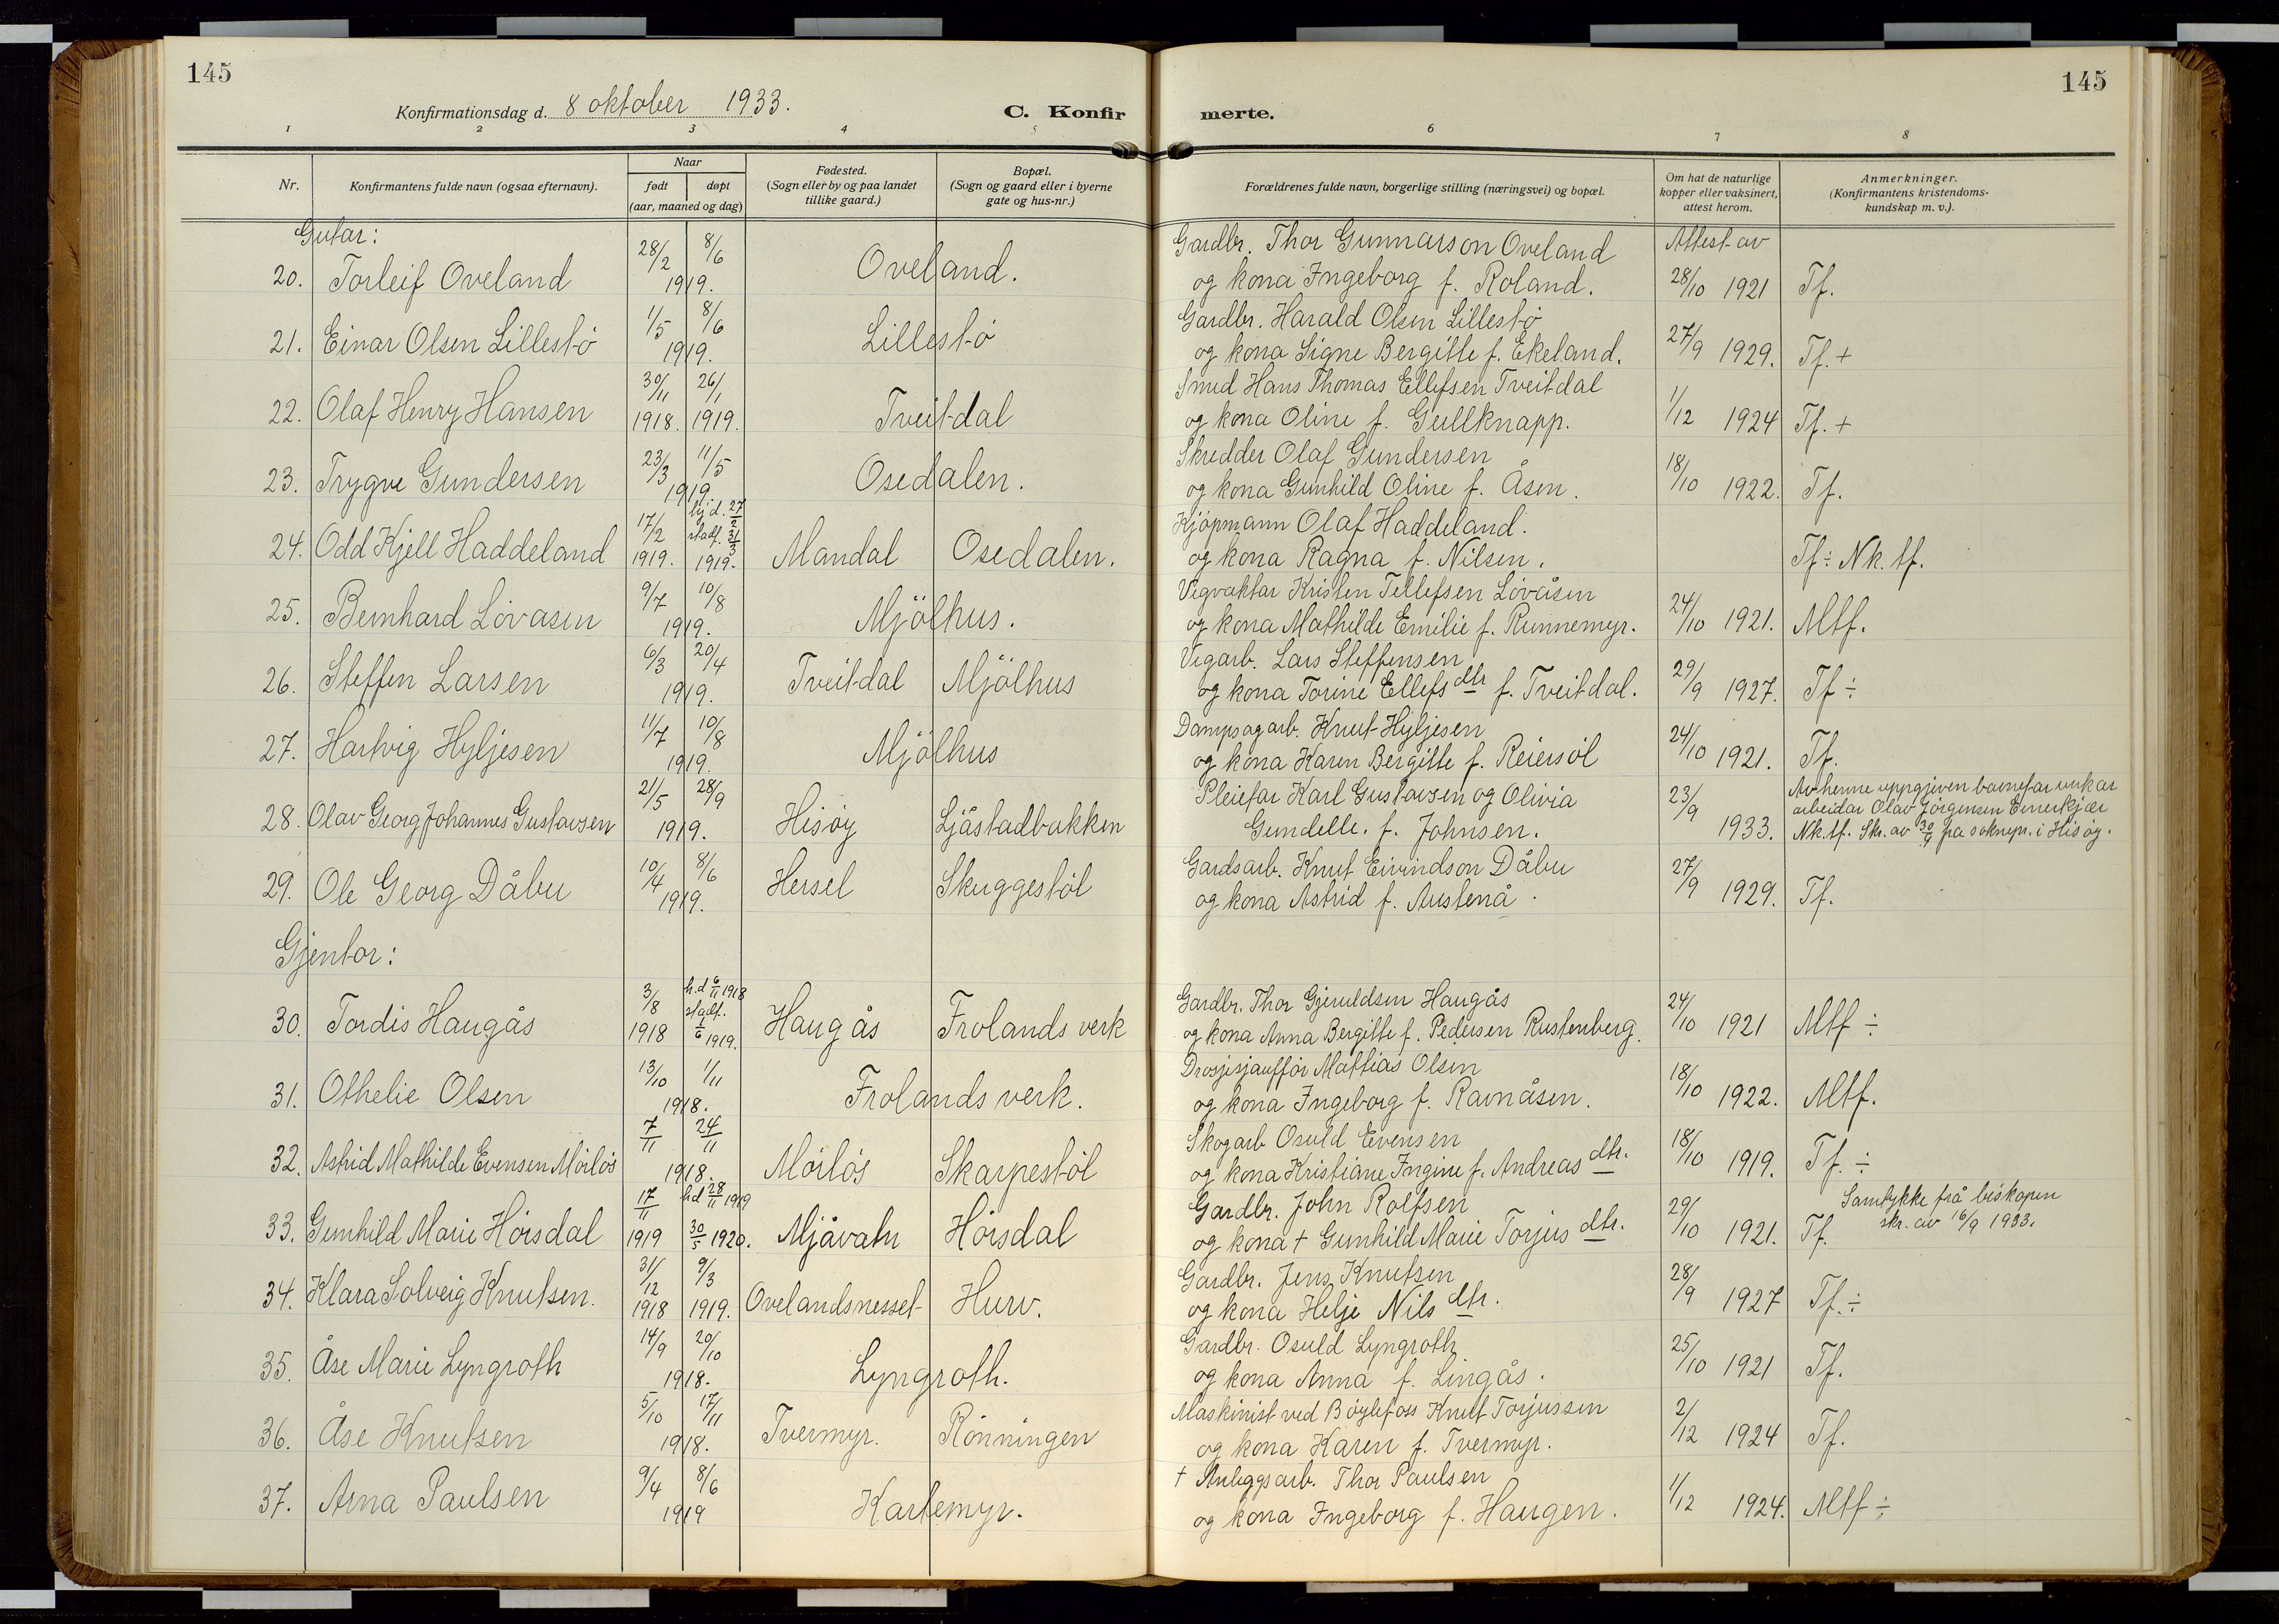 145
145
Konfirmationsdag d. 8 oktober 1933.
C. Konfir
merte.
1 2 3 4 5 6 7 8
Nr.
Konfirmantens fulde navn (ogsaa efternavn).
Naar
født døpt
(aar, maaned og dag)
Fødested.
(Sogn eller by og paa landet
tillike gaard.)
Bopæl.
(Sogn og gaard eller i byerne
gate og hus-nr.)
Forældrenes fulde navn, borgerlige stilling (næringsvei) og bopæl.
Om hat de naturlige
kopper eller vaksinert,
attest herom.
Anmerkninger.
(Konfirmantens kristendoms-
kundskap m. v.).
Gutar:
20. Torleif Oveland 28/2 8/6 1919. Oveland.
Gardbr. Thor Gunnarson Oveland
og kona Ingeborg f. Roland.
Attest av
28/10 1921 Tf.
21. Einar Olsen Lillestö 1/5 8/6 1919. Lillestö
Gardbr. Harald Olsen Lillestö
og kona Signe Bergitte f. Ekeland.
27/9 1929. Tf. +
22. Olaf Henry Hansen 30/11 1918. 26/1 1919. Tveitdal
Smed Hans Thomas Ellefsen Tveitdal
og kona Oline f. Gullknapp.
1/12 1924 Tf. +
23. Trygve Gundersen 23/3 11/5 1919. Osedalen.
Skredder Olaf Gundersen
og kona Gunhild Oline f. Åsen.
18/10 1922. Tf.
24. Odd Kjell Haddeland 17/2 1919. hj.d. 27/2 stadf. 31/3 1919. Mandal Osedalen.
Kjöpmann Olaf Haddeland.
og kona Ragna f. Nilsen.
Tf ÷ Nk. tf.
25. Bernhard Lövasen 9/7 10/8 1919. Mjölhus.
Vegvaktar Kristen Tellefsen Lövåsen
og kona Mathilde Emilie f. Runnemyr.
24/10 1921. Mtf.
26. Steffen Larsen 6/3 20/4 1919. Tveitdal Mjölhus
Vegarb. Lars Steffensen
og kona Torine Ellefs dtr f. Tveitdal.
29/9 1927. Tf ÷
27. Hartvig Hyljesen 11/7 10/8 1919. Mjölhus
Dampsagarb. Knut Hyljesen
og kona Karen Bergitte f. Reiersöl
24/10 1921. Tf.
28. Olav Georg Johannes Gustavsen 21/5 28/9 1919. Hisöy Ljåstadbakken
Pleiefar Karl Gustavsen og Olivia
Gundelle. f. Johnsen.
23/9 1933.
Av henne uppgjeven barnefar verkar
arbeidar Olav Jörgensen Ernerkjær
Nk. tf. Skr. av 30/9 fra soknepr. i Hisöy.
29. Ole Georg Dåbu 10/4 8/6 1919. Hersel Skuggestöl
Gardsarb. Knut Eivindson Dåbu
og kona Astrid f. Austenå.
27/9 1929. Tf.
Gjentor:
30. Tordis Haugås 3/8 1918 h.d 6/11 1918 stadf. 1/6 1919. Haugås Frolands verk
Gardbr. Thor Gjeruldsen Haugås
og kona Anna Bergitte f. Pedersen Rustenberg.
24/10 1921 Mtf ÷
31. Othelie Olsen 13/10 1/11 1918. Frolands verk.
Drosjesjaufför Mattias Olsen
og kona Ingeborg f. Ravnåsen.
18/10 1922. Mtf.
32. Astrid Mathilde Evensen Mörlös 7/11 24/11 1918. Mörlös Skarpestöl
Skogarb Osuld Evensen
og kona Kristiane Ingine f. Andreas dtr.
18/10 1919. Tf. ÷
33. Gunhild Marie Hörsdal 17/11 1919 h.d 28/11 1919 30/5 1920. Mjåvatn Hörsdal
Gardbr. John Rolfsen
og kona † Gunhild Marie Torjus dtr.
29/10 1921. Tf.
Samtykke frå biskopen
skr. av 16/9 1933.
34. Klara Solveig Knutsen. 31/12 1918 9/3 1919. Ovelandsnesset Hurv.
Gardbr. Jens Knutsen
og kona Helje Nils dtr.
28/9 1927 Tf. ÷
35. Åse Marie Lyngroth 14/9 20/10 1918. Lyngroth.
Gardbr. Osuld Lyngroth
og kona Anna f. Lingås.
25/10 1921 Tf.
36. Åse Knutsen 5/10 17/11 1918. Tvermyr. Rönningen
Maskinist ved Böylefoss Knut Torjussen
og kona Karen f. Tvermyr.
2/12 1924 Tf.
37. Arna Paulsen 9/4 8/6 1919 Kartemyr.
† Anleggsarb. Thor Paulsen
og kona Ingeborg f. Haugen.
1/12 1924. Mtf ÷